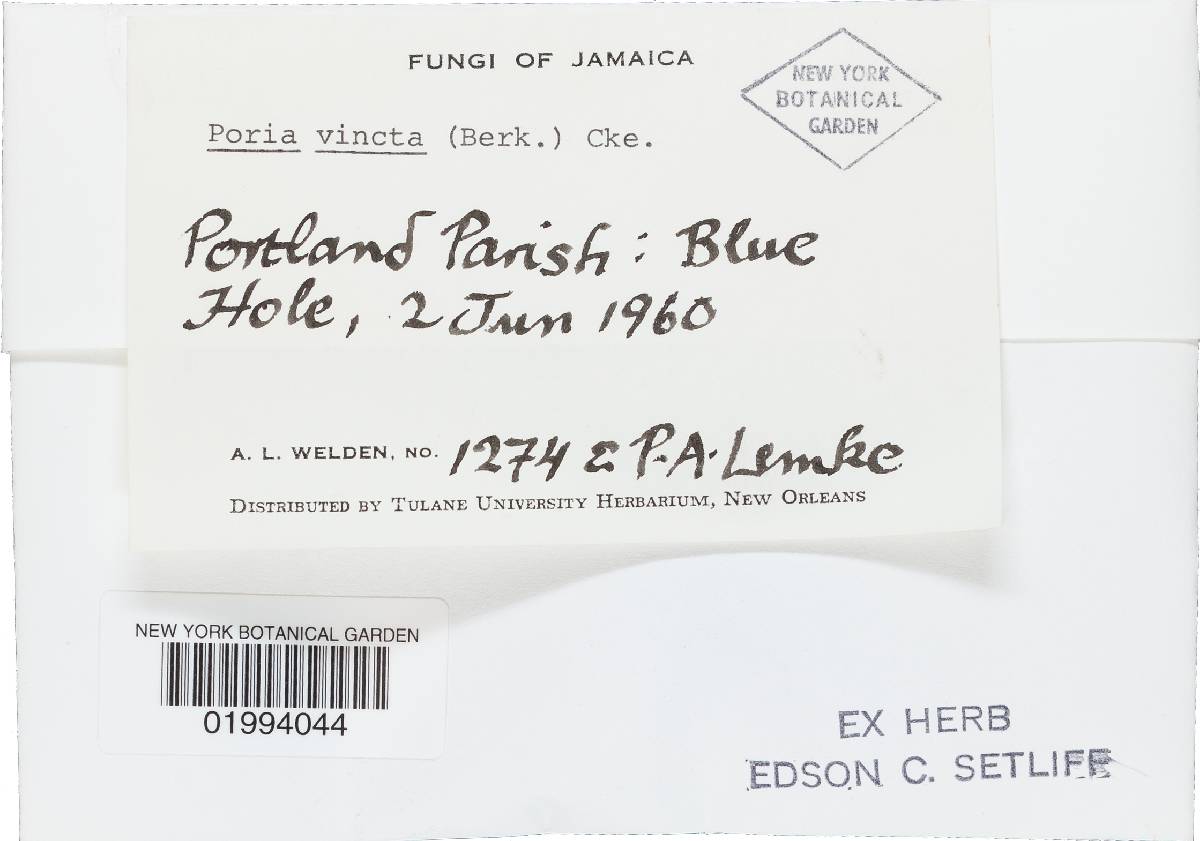 FUNGI OF JAMAICA
NEW YORK
BOTANICAL
GARDEN
Poria vincta (Berk.) Cke.
Portland Parish: Blue
Hole, 2 Jun 1960
A. L. WELDEN, NO. 1274 & P.A. Lemke
DISTRIBUTED BY TULANE UNIVERSITY HERBARIUM, NEW ORLEANS
NEW YORK BOTANICAL GARDEN
01994044
EX HERB
EDSON C. SETLIFF